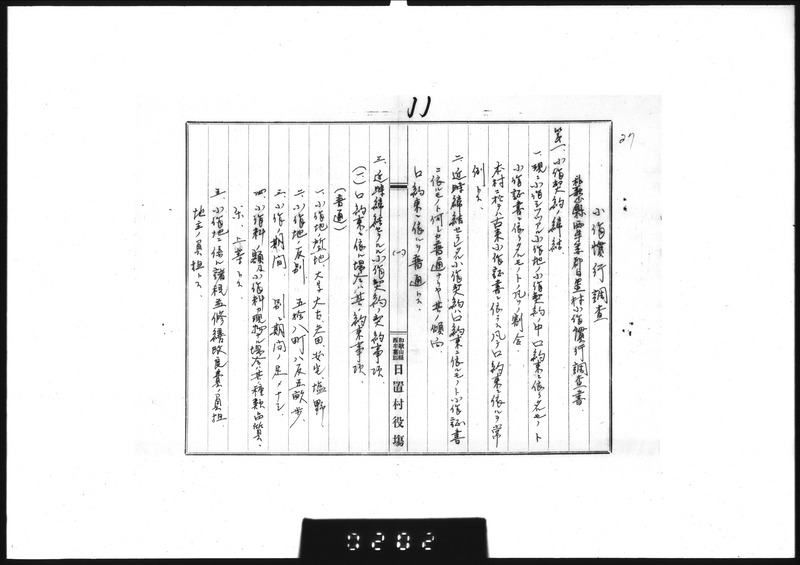 11
27
小作慣行調査
和歌山縣西牟婁郡日置村小作慣行調査書
第一、小作契約ノ締結
一、現ニ小作シツヽアル小作地ノ小作契約中口約束ニ依ルモノト
小作証書ニ依リタルモノトノ凡ソノ割合
本村ニ於テハ古来小作証書ニ依ラス凡テ口約束ニ依ルヲ常
例トス
二、近時締結セラルヽ小作契約ハ口約束ニ依ルモノト小作証書
ニ依ルモノト何レカ普通ナリヤ其ノ傾向
口約束ニ依ルヲ普通トス
(一)
和歌山縣
西牟婁郡
日置村役場
三、近時締結セラルヽ小作契約ノ契約事項
(一)口約束ニ依ル場合其ノ約束事項
(普通)
一、小作地ノ所在 大字大古、
二、小作地ノ反別 五拾八町八反五畝歩
三、小作ノ期間 別ニ期間ノ定メナシ
四、小作料ノ額及小作料ノ現物ナル場合ハ其種類品質、
米、上等トス
五、小作地ニ係ル諸税並修繕改良費ノ負担
地主ノ負担トス
0202